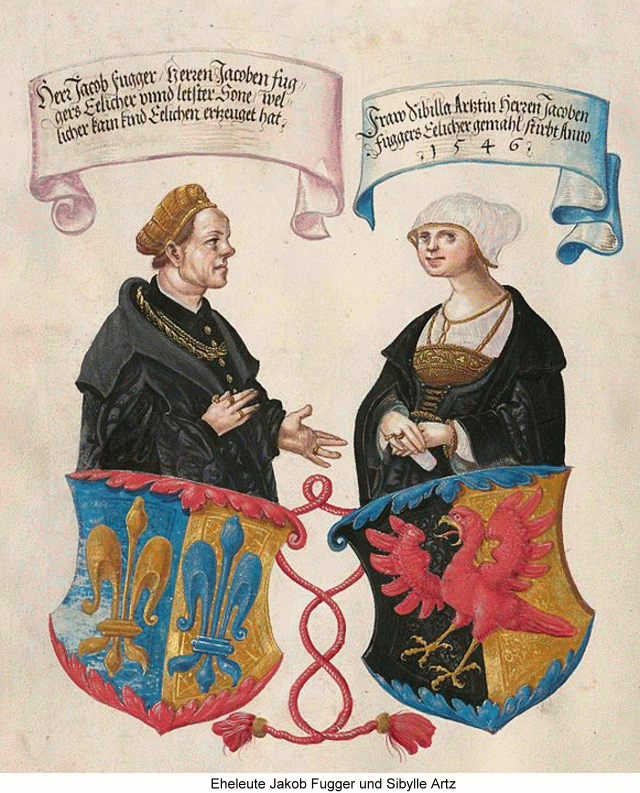 Herr Jacob Fugger / Herren Jacoben fug//
gers Eelicher vnnd letster Sone / wel//
licher kain kind Eelichen ertzeuget hat.
Fraw Sibilla Artztin Herren Jacoben
Fuggers Eelicher gemahl stirbt Anno
1546.
Eheleute Jakob Fugger und Sibylle Artz